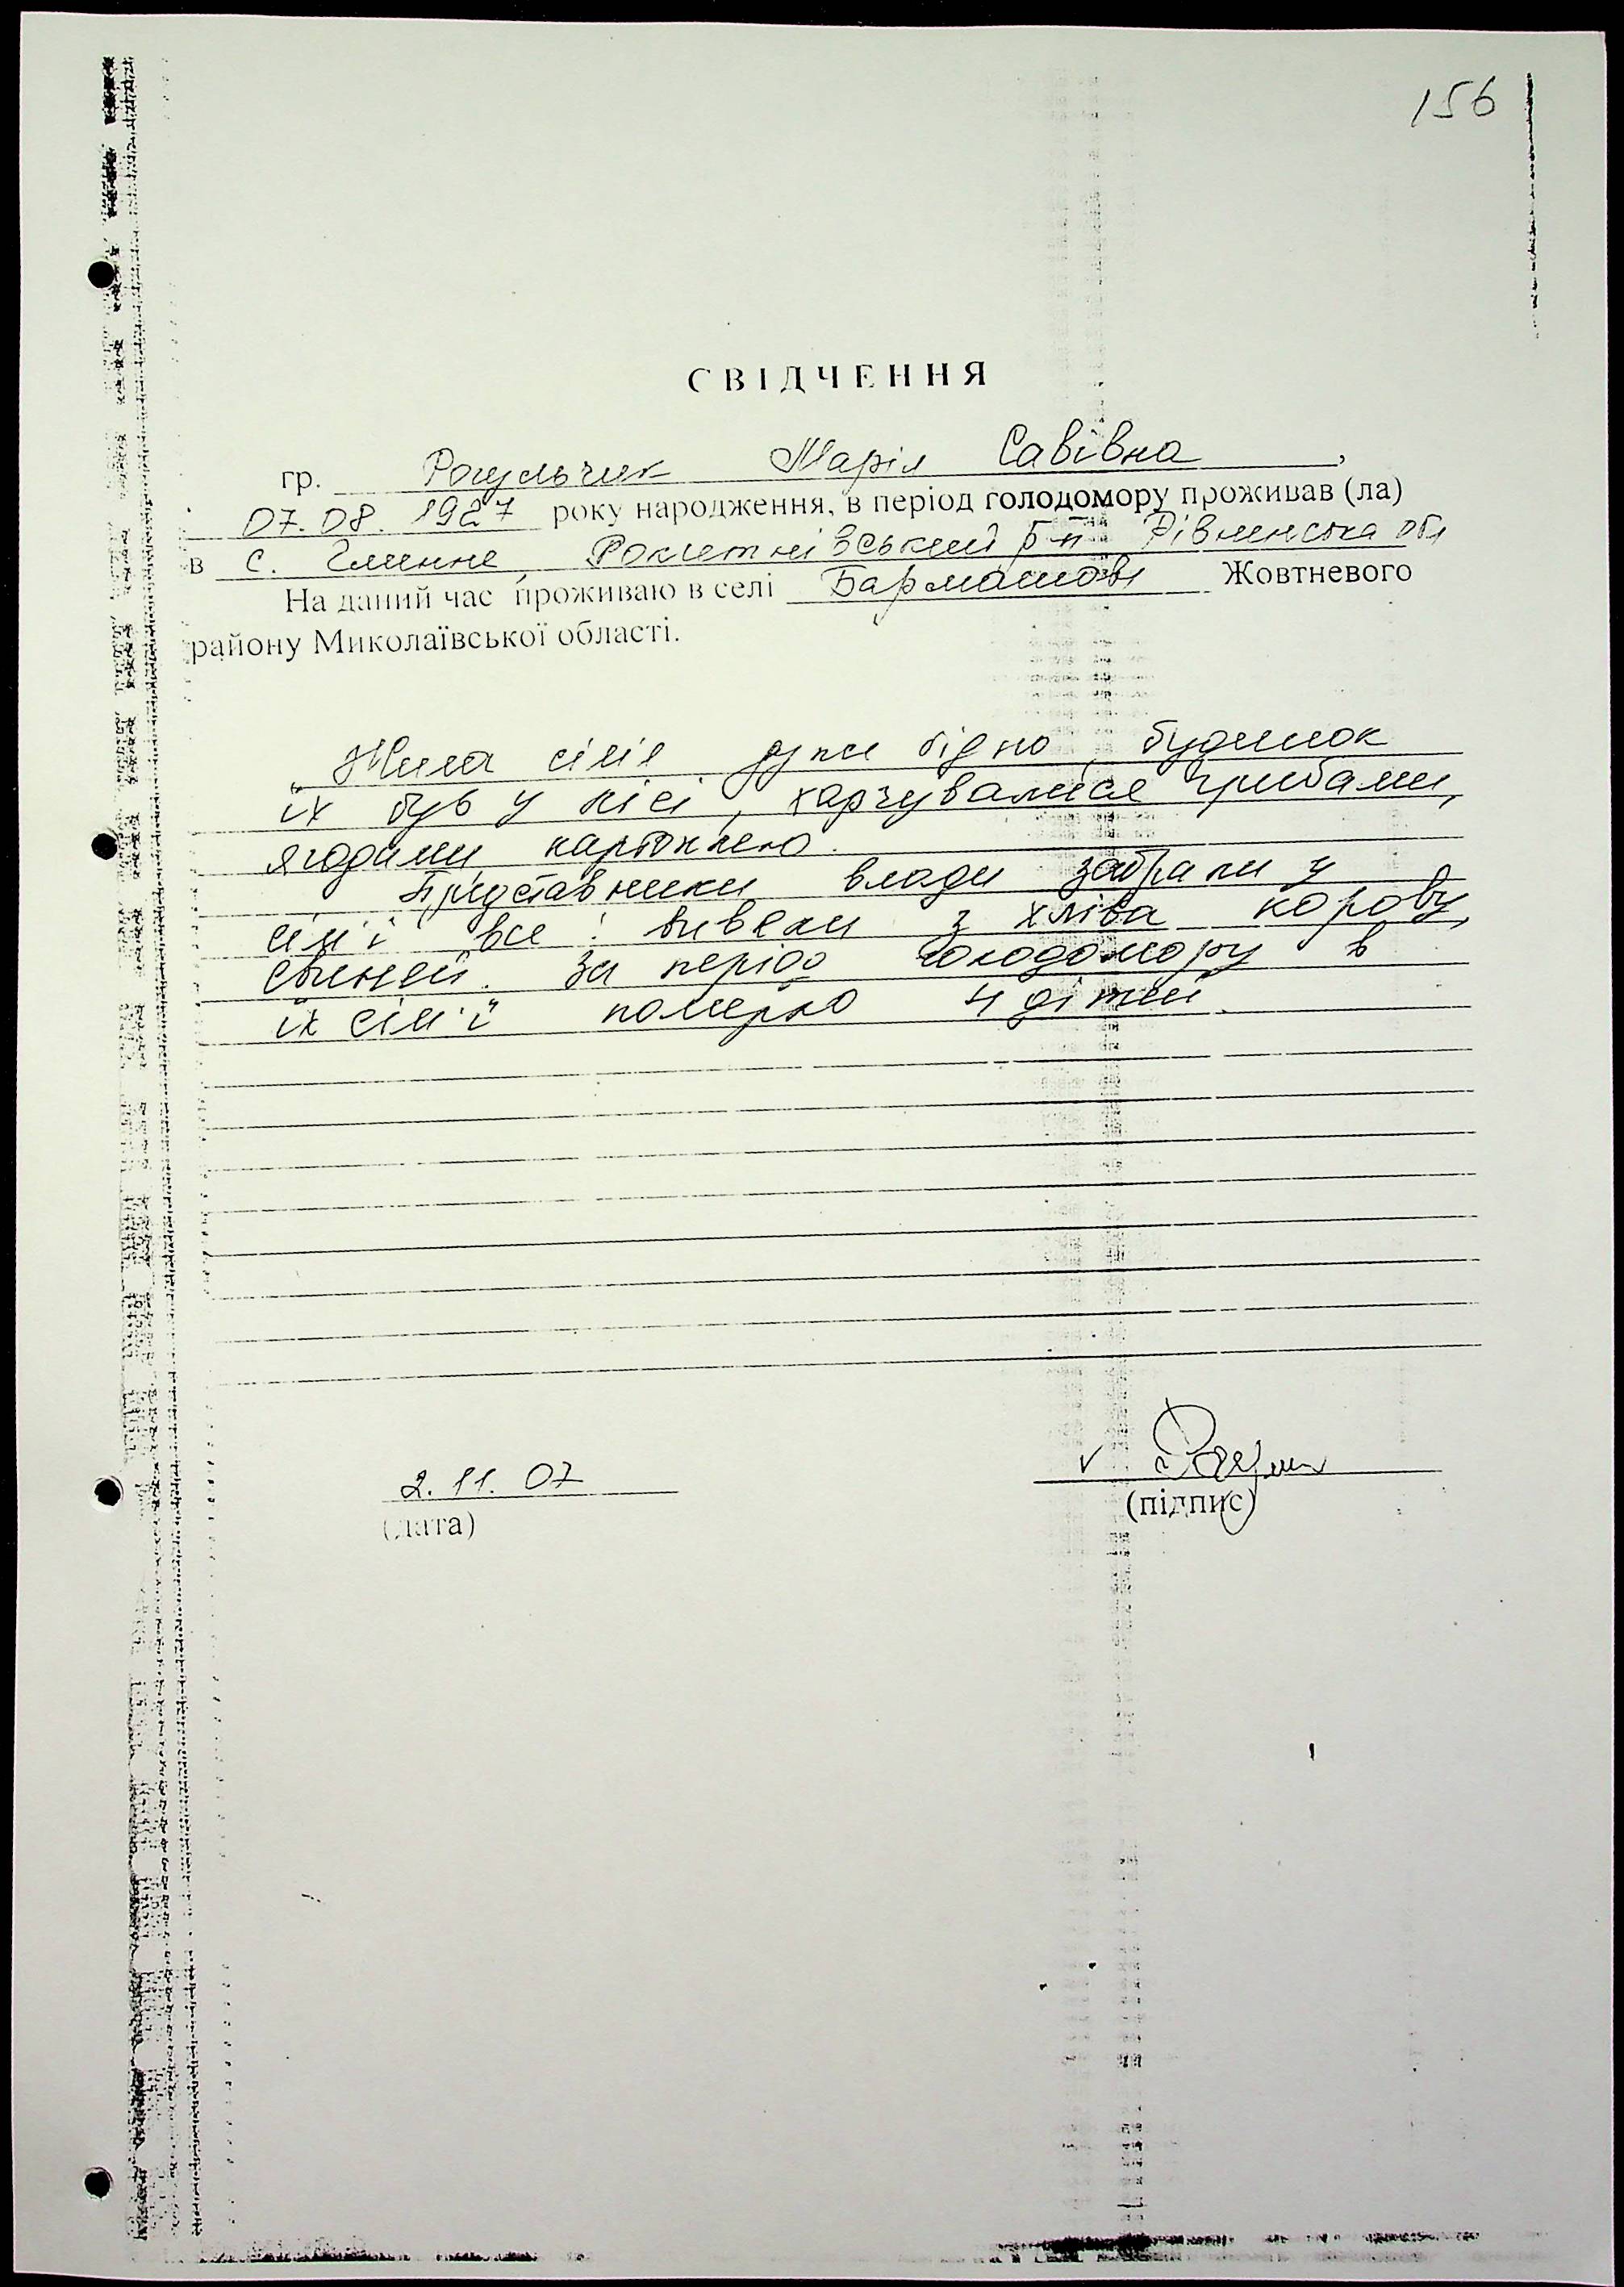 156
СВІДЧЕННЯ
гр. Рогульчик Марія Савівна,
07.08.1927 року народження, в період голодомору проживав (ла)
в с. Глинне, Рокитнівський р-н Рівненська обл
На даний час проживаю в селі Бармашове Жовтневого
району Миколаївської області.
„Жила сім'я дуже бідно, будинок
їх був у лісі, харчувалися грибами,
ягодами, картоплею.
Представники влади забрали у
сім'ї все: вивели з хліва корову,
свиней. За період голодомору в
їх сім'ї померло 4 дітей.
2.11.07
(дата)
(підпис)